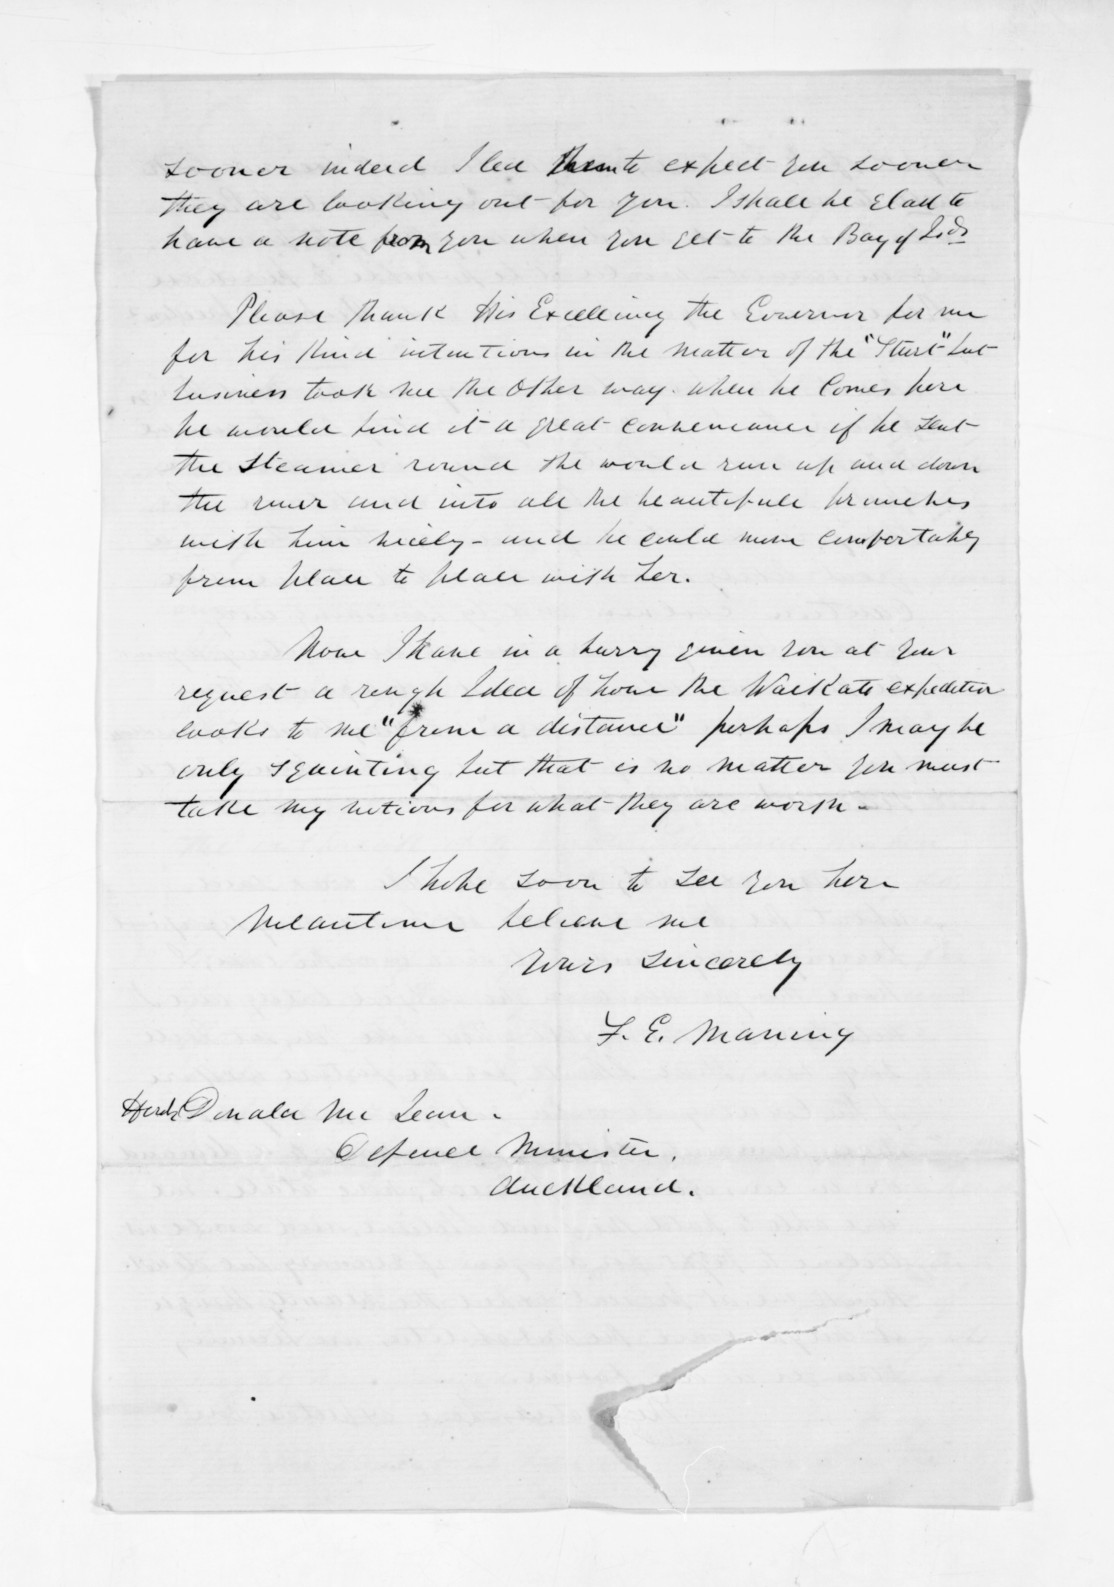 sooner indeed I led them to expect you sooner
they are looking out for you. I shall be glad to
have a note from you when you get to the Bay of Isds
Please thank His Excellency the Governor for me
for his kind intentions in the matter of the "Sturt" but
business took me the other way. when he comes here
he would find it a great convenience if he sent
the steamer round she would run up and down
the river and into all the beautifull branches
with him nicely - and he could move comfortably
from place to place with her.
Now I have in a hurry given you at your
request a rough Idea of how the Waikato expedition
looks to me "from a distance" perhaps I may be
only squinting but that is no matter you must
take my notions for what they are worth -
I hope soon to see you here
Meantime believe me
Yours sincerely
F. E. Maning
Honble Donald Mc Lean.
Defence Minister.
Auckland.